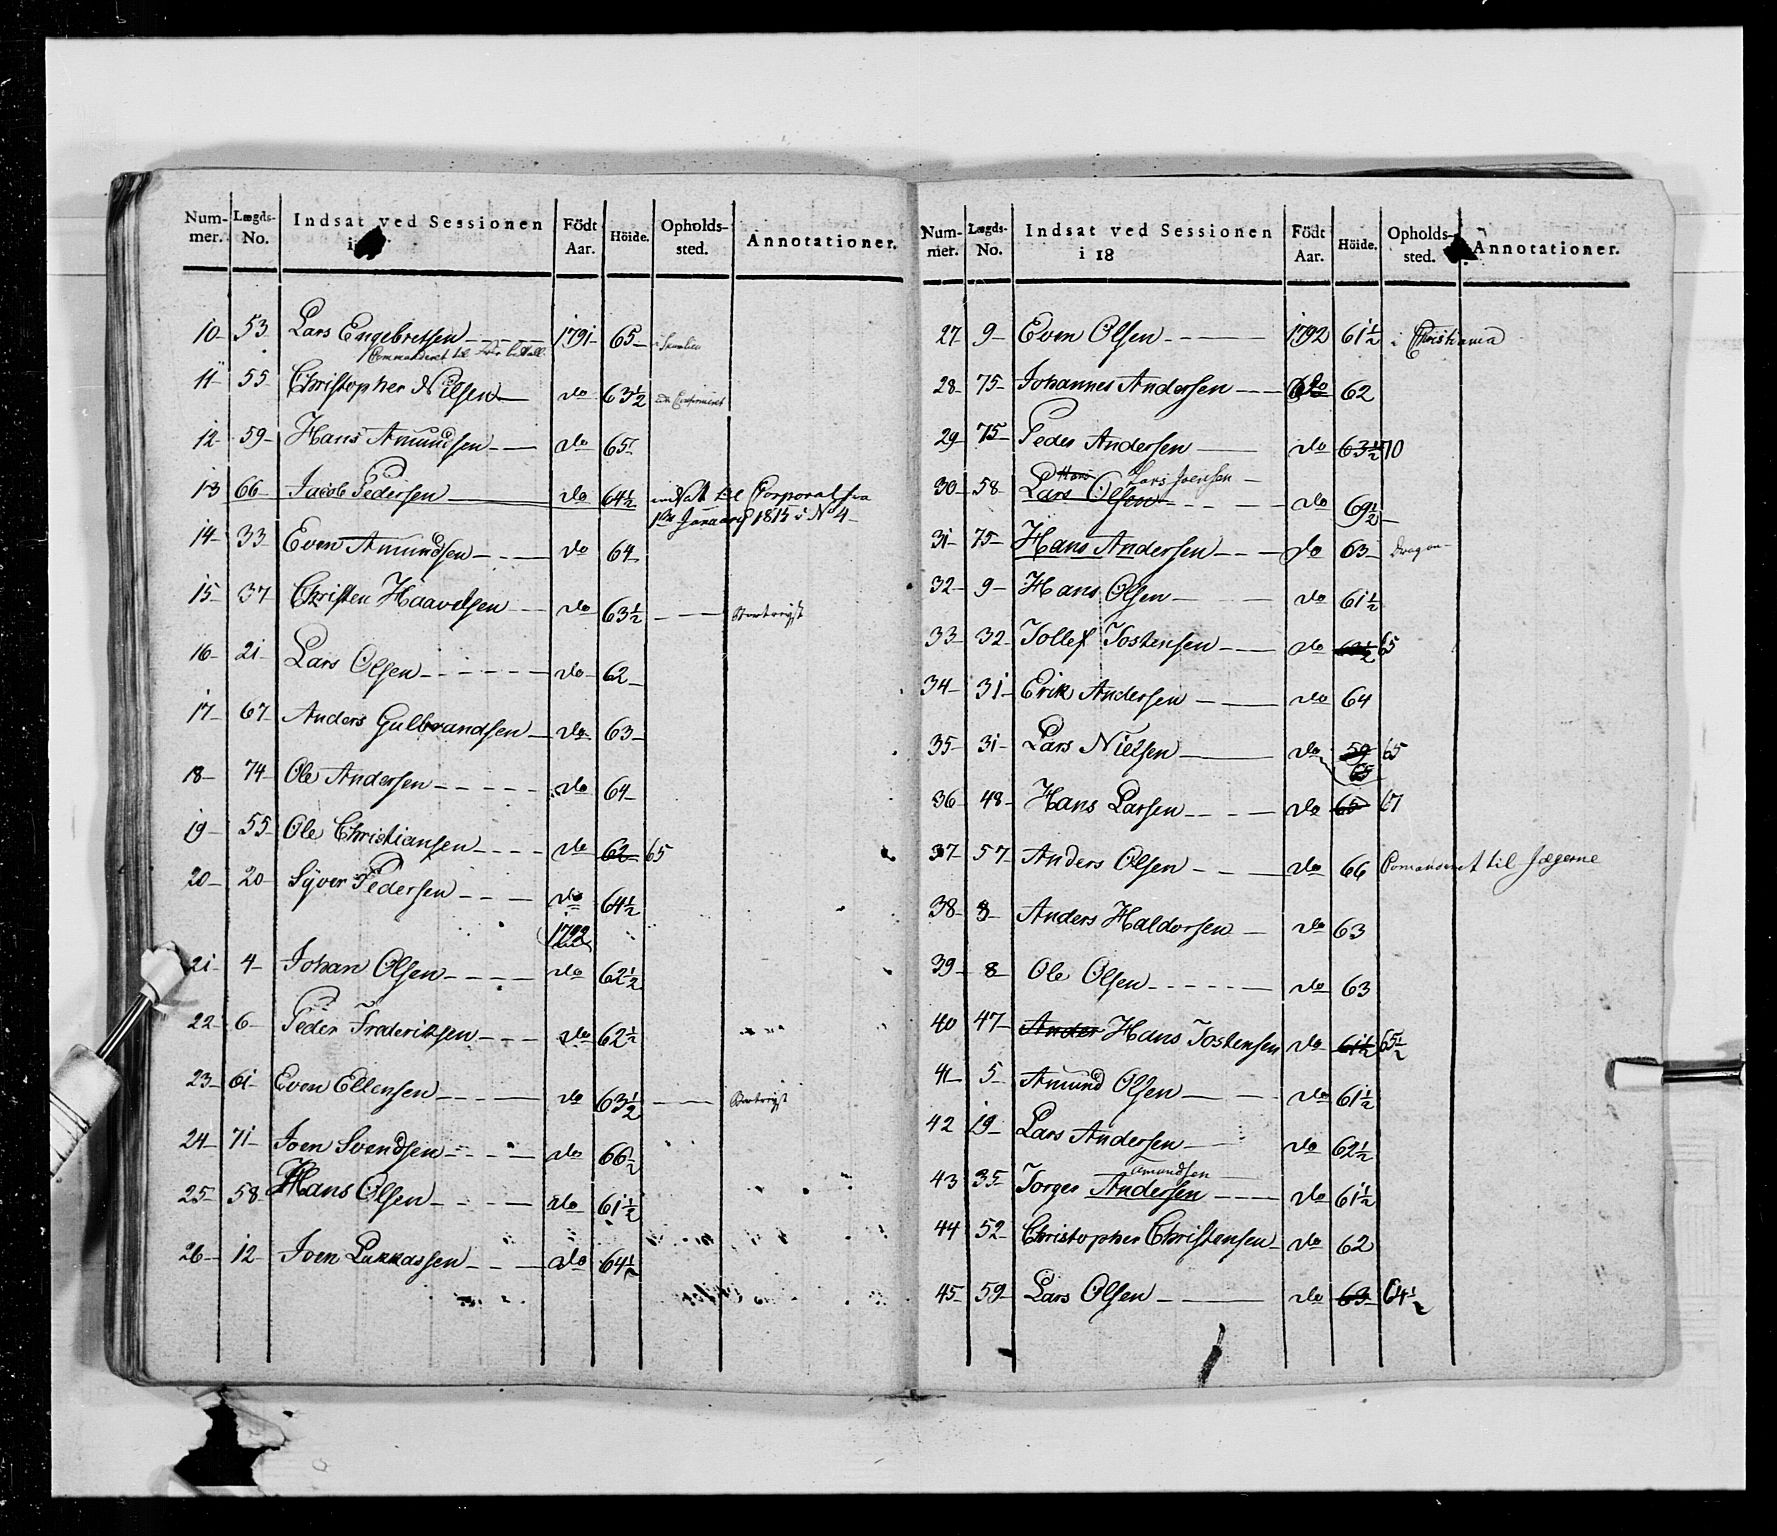 Num- Lægds- Indsat ved Sessionen Födt Höide. Opholds- Annotationer.
mer. No. i Aar. sted.
10 53 Lars Engebretsen 1791 65
Commanderet til
11 55 Christopher Nilsen do 63½
12 59 Hans Amundsen do 65
13 66 Jacob Pedersen do 64½ indsat til Corporal fra
1ste Januarij 1815 i No 4
14 33 Even Amundsen do 64
15 37 Christen Haavelsen do 63½
16 21 Lars Olsen do 62
17 67 Anders Gulbrandsen do 63
18 74 Ole Andersen do 64
19 55 Ole Christiansen do 62 65
20 20 Syver Pedersen do 64½
1792
21 4 Johan Olsen do 62½
22 6 Peder Frederiksen do 62½
23 61 Even Ellensen do 63½
24 71 Joen Svendsen do 66½
25 58 Hans Olsen do 61½
26 12 Joen Lukkassen do 64½
Num- Lægds- Indsat ved Sessionen Födt Höide. Opholds- Annotationer.
mer. No. i 18 Aar. sted.
27 9 Even Olsen 1792 61½ i Christiania
28 75 Johannes Andersen do 62
29 75 Peder Andersen do 63½ 70
Hans Lars Joensen
30 58 Lars Olsen do 69½
31 75 Hans Andersen do 63 Dragon
32 9 Hans Olsen do 61½
33 32 Tollef Tostensen do 65
34 31 Erik Andersen do 64
35 31 Lars Nielsen do 59 65
65
36 48 Hans Larsen do 65 67
37 57 Anders Olsen do 66 Comanderet til Jægerne
38 8 Anders Haldorsen do 63
39 8 Ole Olsen do 63
40 47 Ander Hans Tostensen do 61½ 65½
41 5 Amund Olsen do 61½
42 19 Lars Andersen do 62½
Amundsen
43 35 Torger Andersen do 61½
44 52 Christopher Christensen do 62
45 59 Lars Olsen do 63 64½